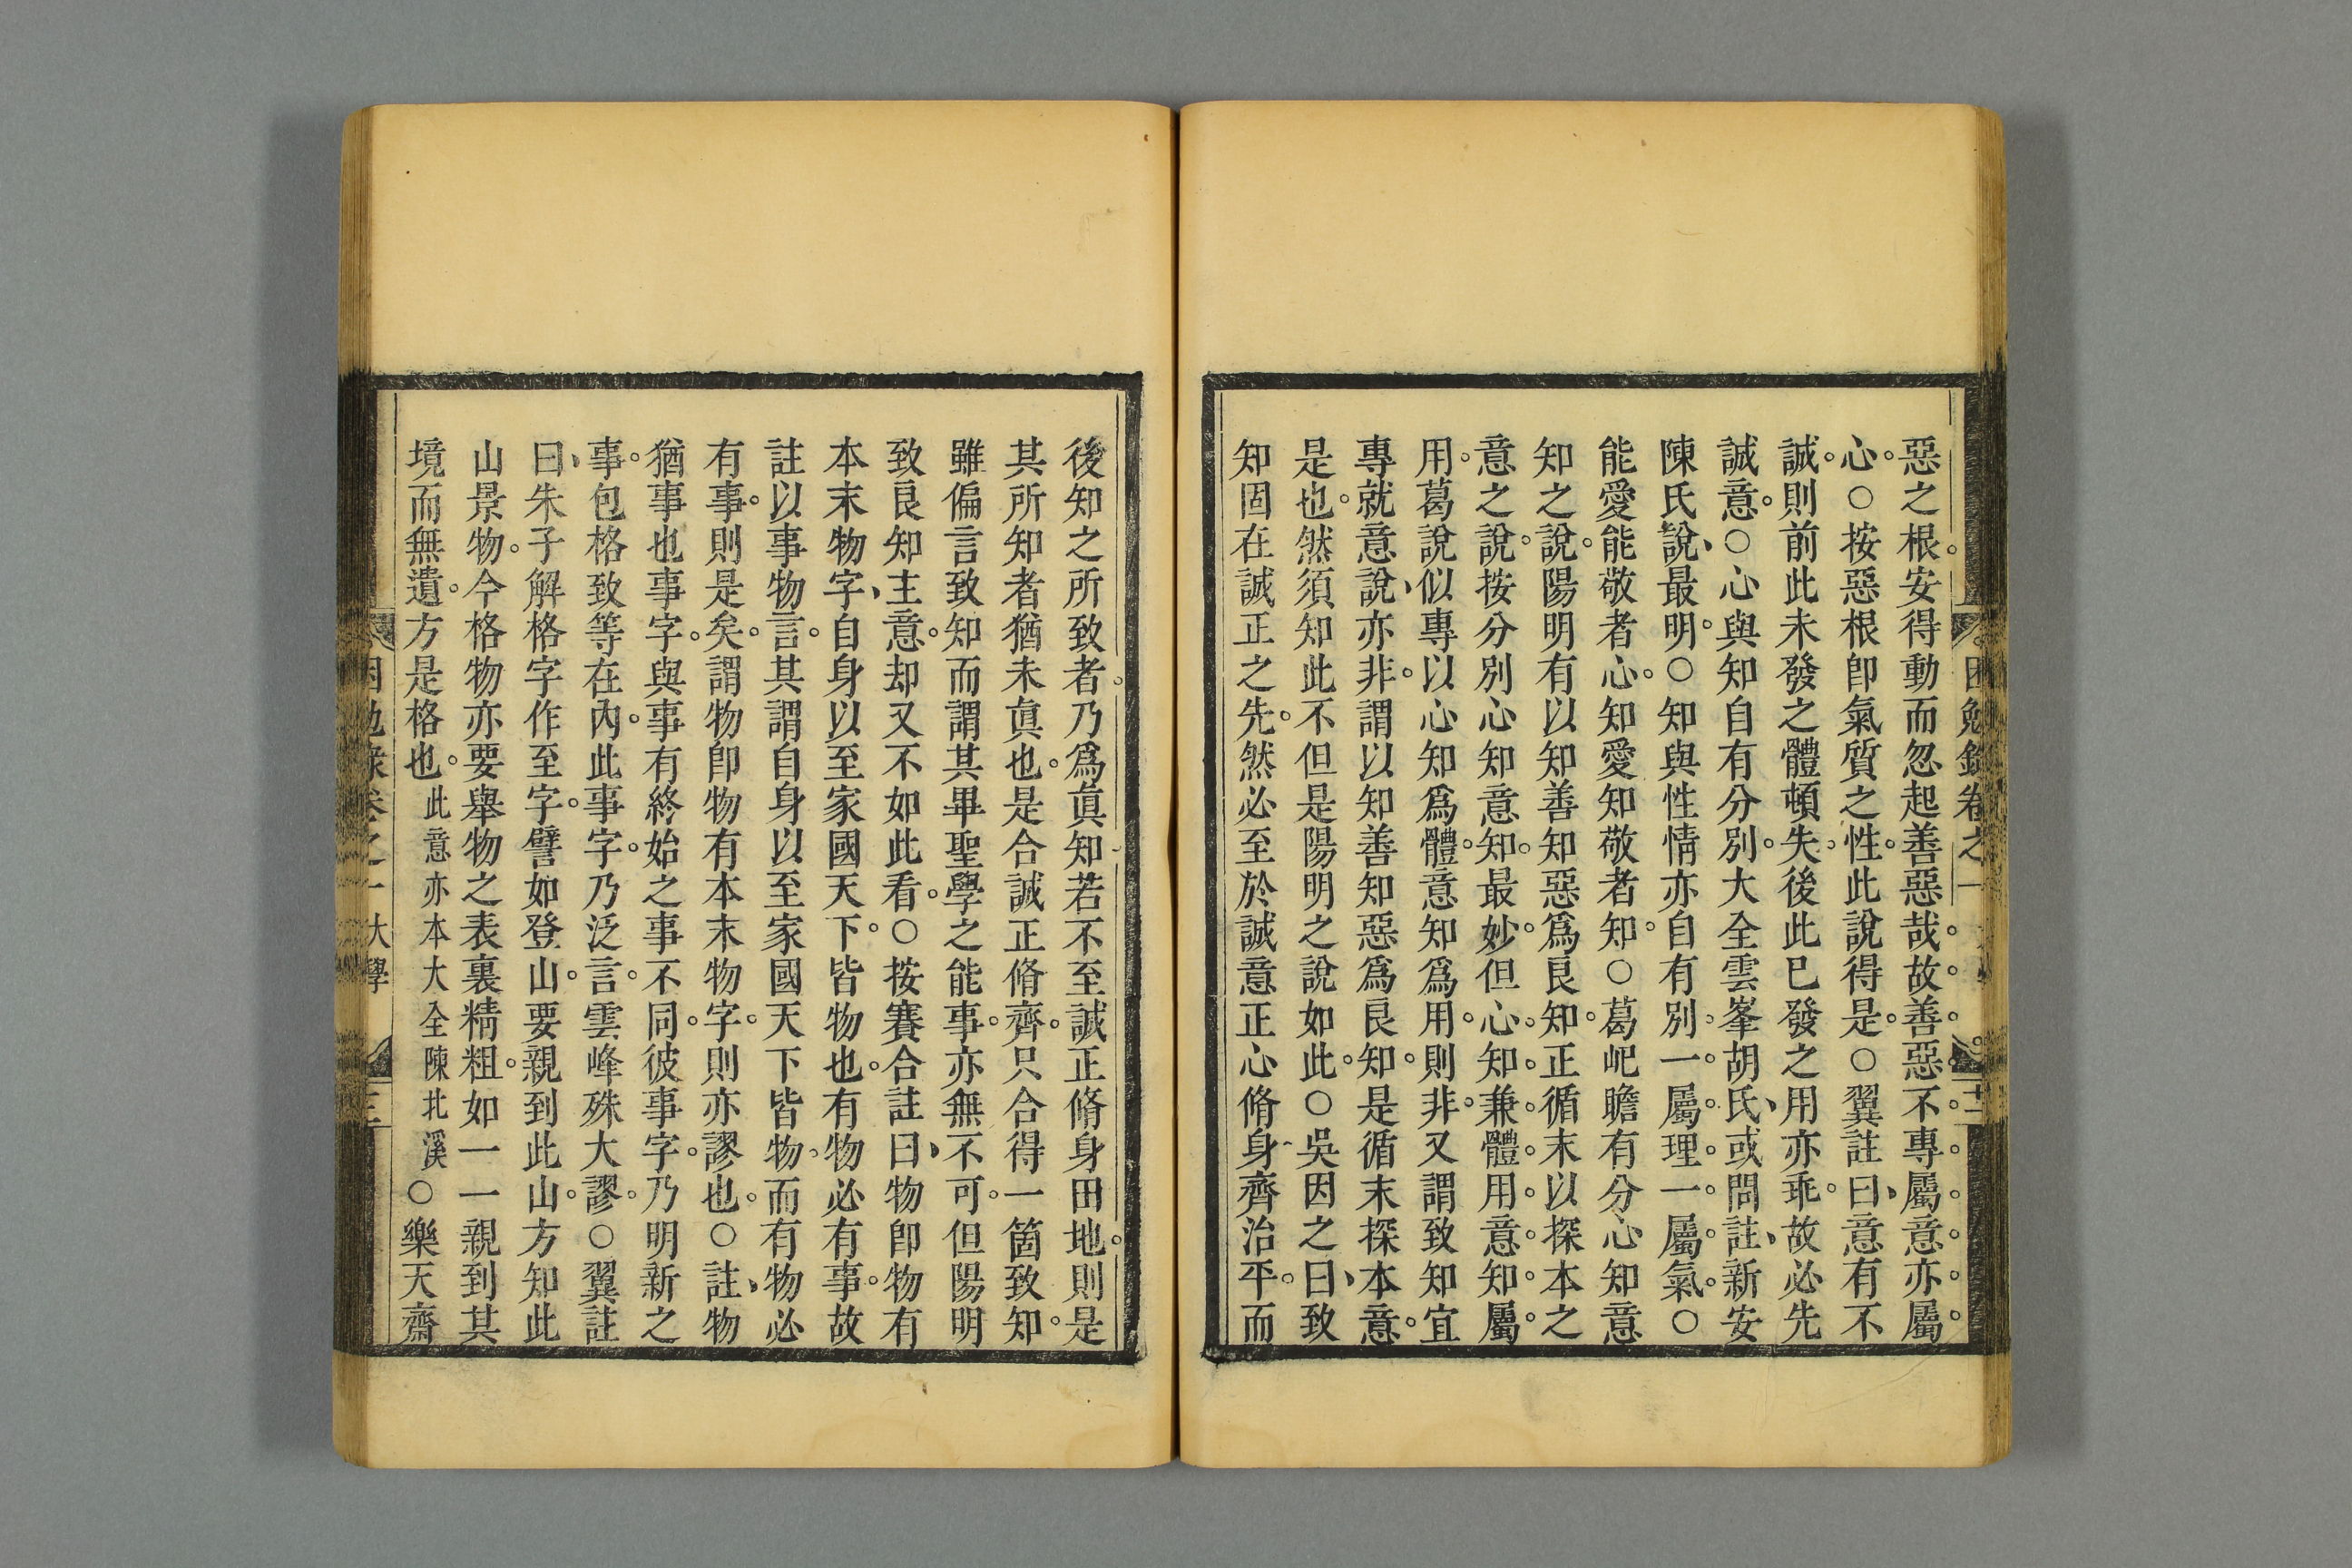 惡之根。安得動而忽起善惡哉。故善惡不專屬意亦屬
心。○按惡根卽氣質之性。此說得是。○翼註曰、意有不
誠。則前此未發之體頓失。後此已發之用亦乖。故必先
誠意。○心與知自有分別。大全雲峯胡氏、或問註、新安
陳氏說、最明。○知與性情亦自有別。一屬理。一屬氣。○
能愛能敬者心。知愛知敬者知。○葛屺瞻有分心知意
知之說。陽明有以知善知惡爲良知。正循末以探本之
意之說。按分別心知意知。最妙。但心知兼體用。意知屬
用。葛說似專以心知爲體。意知爲用。則非。又謂致知宜
專就意說、亦非。謂以知善知惡爲良知。是循末探本意。
是也。然須知此不但是陽明之說如此。○吳因之曰、致
知固在誠正之先。然必至於誠意正心脩身齊治平。而
後知之所致者。乃爲眞知若不至誠正脩身田地。則是
其所知者猶未眞也。是合誠正脩齊。只合得一箇致知。
雖偏言致知而謂其畢聖學之能事。亦無不可。但陽明
致良知主意。却又不如此看。○按賽合註曰、物卽物有
本末物字、自身以至家國天下。皆物也。有物必有事。故
註以事物言。其謂自身以至家國天下皆物。而有物必
有事。則是矣。謂物卽物有本末物字。則亦謬也。○註、物
猶事也事字。與事有終始之事不同。彼事字。乃明新之
事。包格致等在內。此事字。乃泛言。雲峰殊大謬。○翼註
曰、朱子解格字作至字。譬如登山。要親到此山。方知此
山景物。今格物亦要舉物之表裏精粗。如一一親到其
境而無遺。方是格也。此意亦本大全陳北溪○樂天齋
困勉錄卷之一
十二
大學